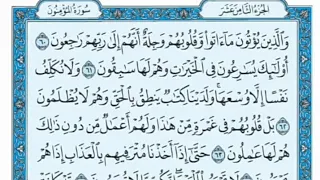 سُورَةُ المُؤْمِنُونَ الجُزْءُ الثَّامِنَ عَشَرَ
وَالَّذِينَ يُؤْتُونَ مَا ءَاتَوا وَّقُلُوبُهُمْ وَجِلَةٌ أَنَّهُمْ إِلَىٰ رَبِّهِمْ رَٰجِعُونَ ٦٠
أُوْلَٰٓئِكَ يُسَٰرِعُونَ فِي ٱلْخَيْرَٰتِ وَهُمْ لَهَا سَٰبِقُونَ ٦١ وَلَا نُكَلِّفُ
نَفْسًا إِلَّا وُسْعَهَا وَلَدَيْنَا كِتَٰبٌ يَنطِقُ بِٱلْحَقِّ وَهُمْ لَا يُظْلَمُونَ
٦٢ بَلْ قُلُوبُهُمْ فِي غَمْرَةٍ مِّنْ هَٰذَا وَلَهُمْ أَعْمَٰلٌ مِّن دُونِ ذَٰلِكَ
هُمْ لَهَا عَٰمِلُونَ ٦٣ حَتَّىٰٓ إِذَآ أَخَذْنَا مُتْرَفِيهِم بِٱلْعَذَابِ إِذَا هُمْ